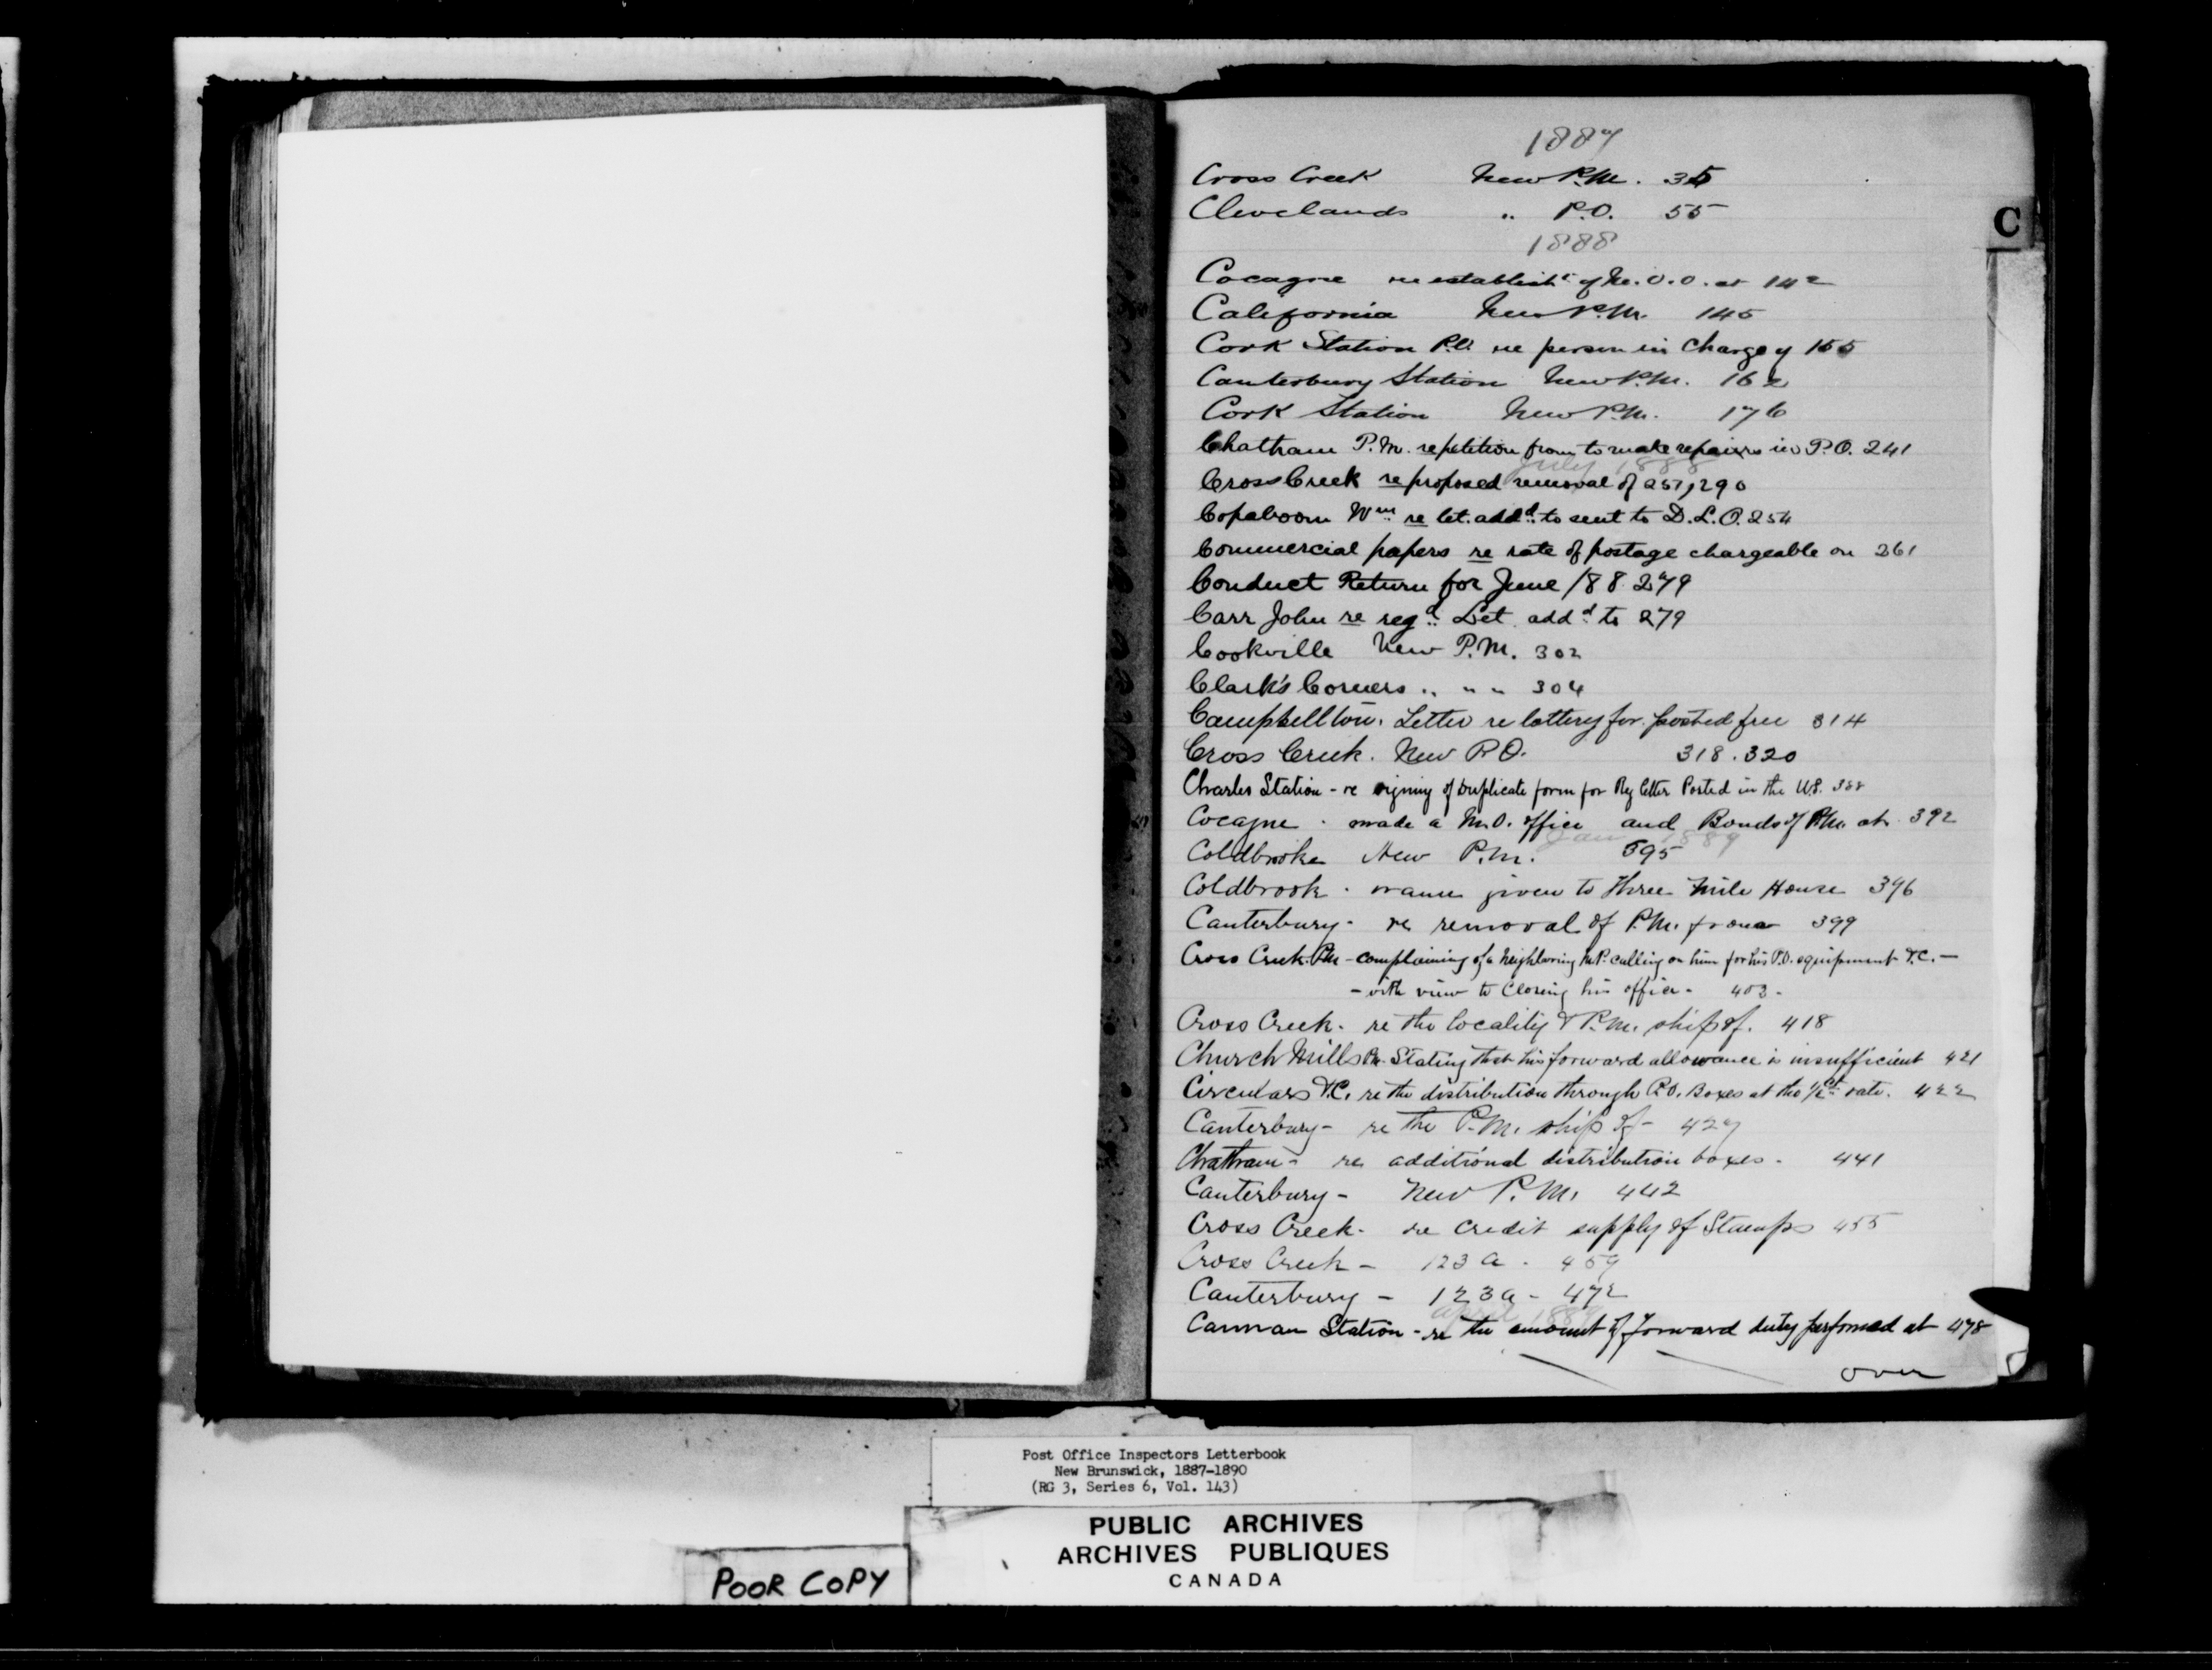 1887
Cross Creek New P.M. 35
Clevelands " P.O. 55
C
1888
Cocagne re establisht of M.O.O. at 142
California New P.M. 145
Cork Station P.O. re person in charge of 155
Canterbury Station New P.M. 162
Cork Station New P.M. 176
Chatham P.M. re petition from to make repairs in P.O. 241
July 1888
Cross Creek re proposed removal of 257, 290
Copaboom Wm re let. addd to sent to D.L.O. 254
Commercial papers re rate of postage chargeable on 261
Conduct Return for June /88 279
Carr John re regd Let. addd to 279
Cookville New P.M. 302
Clark's Corners " " " 304
Campbellton. Letter re lottery for. posted free 314
Cross Creek. New P.O. 318. 320
Charles Station - re signing of Duplicate form for Reg letter Posted in the U.S. 388
Cocagne - made a M.O. office and Bonds of P.M. at 392
Jan 1889
Coldbrooke New P.M. 395
Coldbrook - name given to Three Mile House 396
Canterbury - re removal of P.M. from 399
Cross Creek P.M. - complaining of a neighboring M.P. calling on him for his P.O. equipment &C. -
- with view to Closing his office - 403 -
Cross Creek - re the locality & P.M. ship of. 418
Church Mills P.M. Stating that his forward allowance is insufficient 421
Circulars &C. re the distribution through P.O. Boxes at the 1/2ct rate. 422
Canterbury - re the P.M. ship of - 427
Chatham - re additional distribution boxes - 441
Canterbury - New P.M. 442
Cross Creek - re credit supply of Stamps 455
Cross Creek - 123a - 459
Canterbury - 123a - 472
April 1889
Canman Station - re the amount of forward duty performed at 478
over
Post Office Inspectors Letterbook
New Brunswick, 1887-1890
(RG 3, Series 6, Vol. 143)
PUBLIC ARCHIVES
ARCHIVES PUBLIQUES
CANADA
POOR COPY